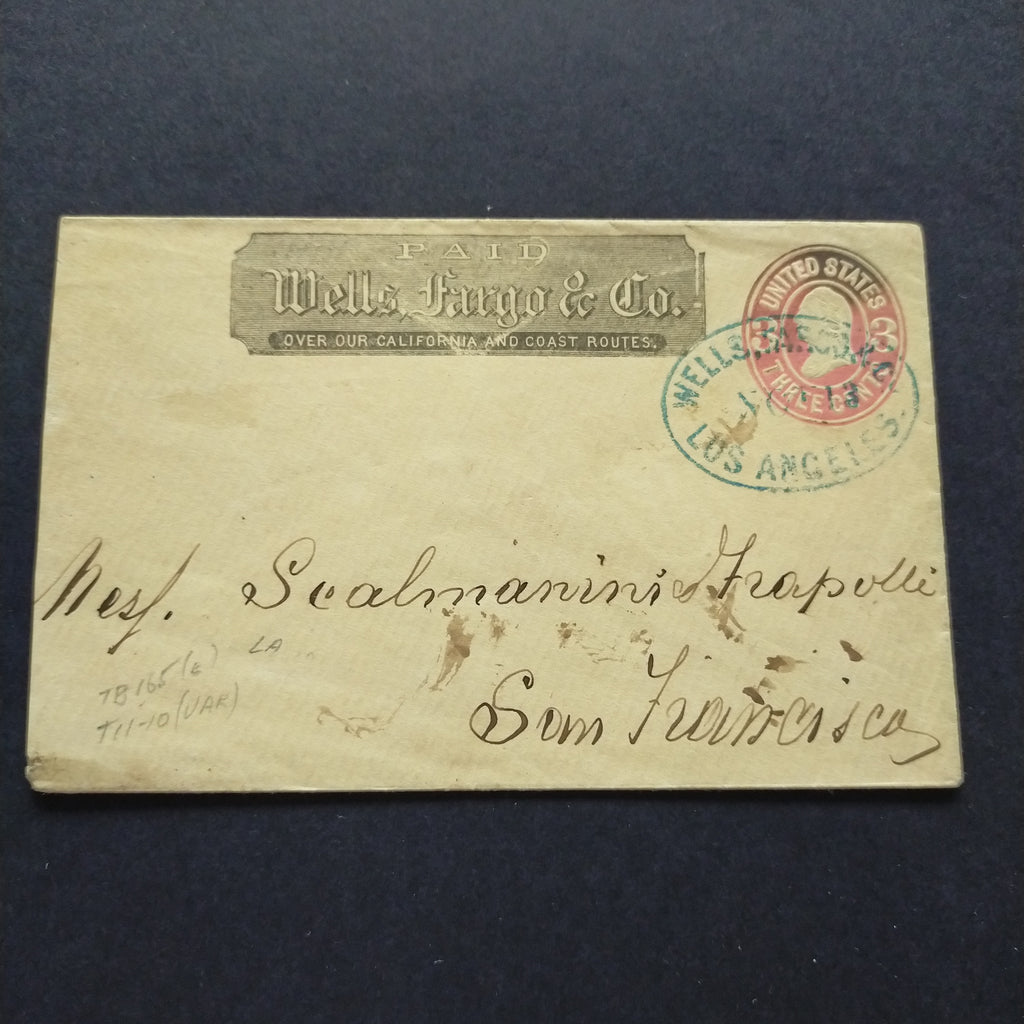 PAID
Wells, Fargo & Co.
OVER OUR CALIFORNIA AND COAST ROUTES.
UNITED STATES
3 3
THREE CENTS
WELLS, FARGO & CO.
13
LOS ANGELES.
Mess. Scalmanini & Frapolli
San Francisco
LA
TB 165 (E)
T11-10 (VAR)